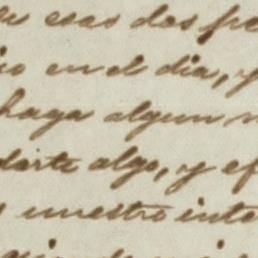 de esas dos pe
io en el dia, y
haga algun
darte algo, y ef
nuestro inte